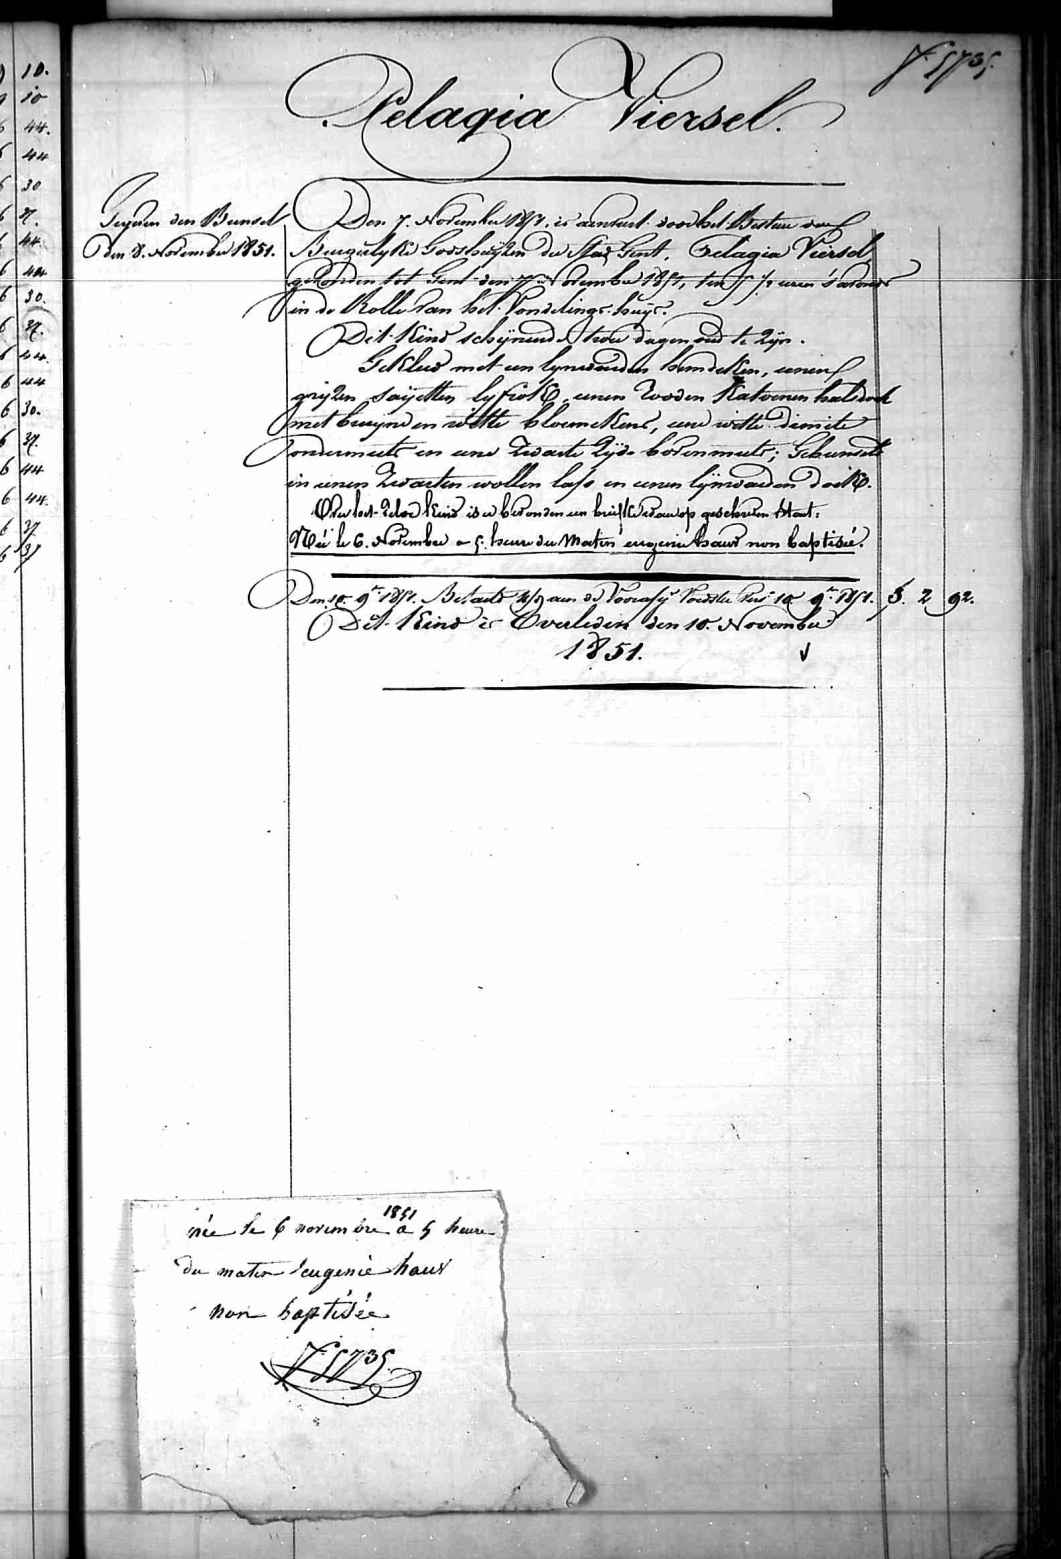 10.
10
44.
44
30
37.
44
44
30.
37.
44.
44
30.
37.
44
44.
37
37
F 5735.
Pelagia Viersel.
den Bunsel
den 8. November 1851.
Den 7. November 1851, is aenveert door het Bestuur der
Burgerlyke Godshuyzen der Stad Gent, Pelagia Viersel,
gevonden tot Gent den 7 November 1851, ten 5 1/2 uren s'avonds
in de Rolle van het Vondelings-huys.
Dit Kind schynende twee dagen oud te zyn.
Gekleed met een lynwaeden hemdeken, eenen
gryzen sayetten lyfrok, eenen rooden Katoenen halsdoek
met bruyne en witte bloemekens, eene witte dimitte
ondermuts en eene zwarte zyde bovenmuts; Gebunseld
in eenen zwarten wollen laps en eenen lynwaeden doek.
Op het zelve Kind is er bevonden een briefke waerop geschreven staet:
Née le 6. November a 5. heure du Matin eugenie haus non baptisée.
Den 10 9r 1851. Betaeld aen de Voedster 10 9r 1851. f. 2 92.
Dit Kind is Overleden den 10. November
1851.
1851
née le 6 novembre a 5 heure
du matin eugenie haus
non baptisée
F 5735.